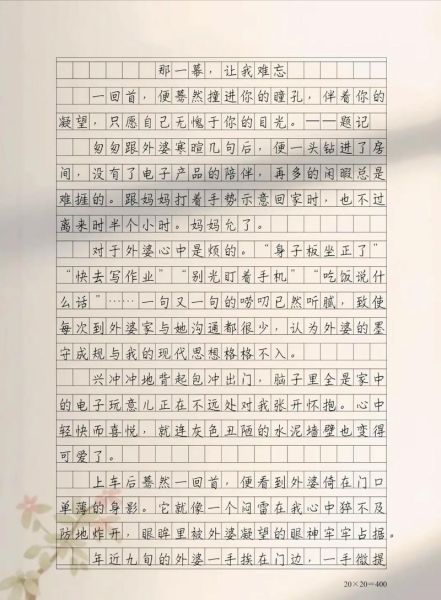 那一幕，让我难忘
一回首，便蓦然撞进你的瞳孔，伴着你的
凝望，只愿自己无愧于你的目光。——题记
匆匆跟外婆寒暄几句后，便一头钻进了房
间，没有了电子产品的陪伴，再多的闲暇总是
难捱的。跟妈妈打着手势示意回家时，也不过
离来时半个小时。妈妈允了。
对于外婆心中是烦的。“身子板坐正了”
“快去写作业”“别光盯着手机”“吃饭说什
么话”……一句又一句的唠叨已然听腻，致使
每次到外婆家与她沟通都很少，认为外婆的墨
守成规与我的现代思想格格不入。
兴冲冲地背起包冲出门，脑子里全是家中
的电子玩意儿正在不远处对我张开怀抱。心中
轻快而喜悦，就连灰色丑陋的水泥墙壁也变得
可爱了。
上车后蓦然一回首，便看到外婆倚在门口
单薄的身影。它就像一个闷雷在我心中猝不及
防地炸开，眼眸里被外婆凝望的眼神牢牢占据。
年近九旬的外婆一手挨在门边，一手微提
20×20=400